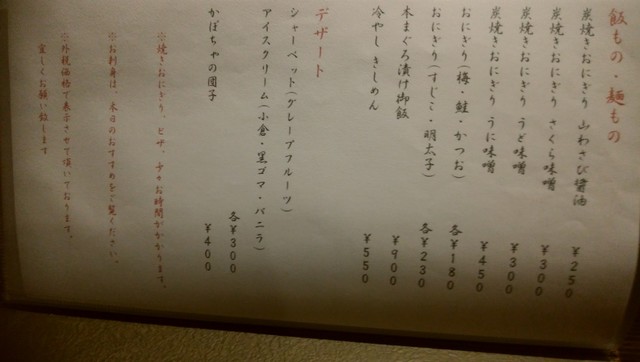 飯もの・麺もの
炭焼きおにぎり 山わさび醤油 ¥250
炭焼きおにぎり さくら味噌 ¥300
炭焼きおにぎり うど味噌 ¥300
炭焼きおにぎり うに味噌 ¥450
おにぎり(梅・鮭・かつお) 各¥180
おにぎり(すじこ・明太子) 各¥230
本まぐろ漬け御飯 ¥900
冷やしきしめん ¥550
デザート
シャーベット(グレープフルーツ)
アイスクリーム(小倉・黒ゴマ・バニラ) 各¥300
かぼちゃの団子 ¥400
※焼きおにぎり、ピザ、少々お時間がかかります。
※お刺身は、本日のおすすめをご覧ください。
※外税価格で表示させて頂いております。
宜しくお願い致します